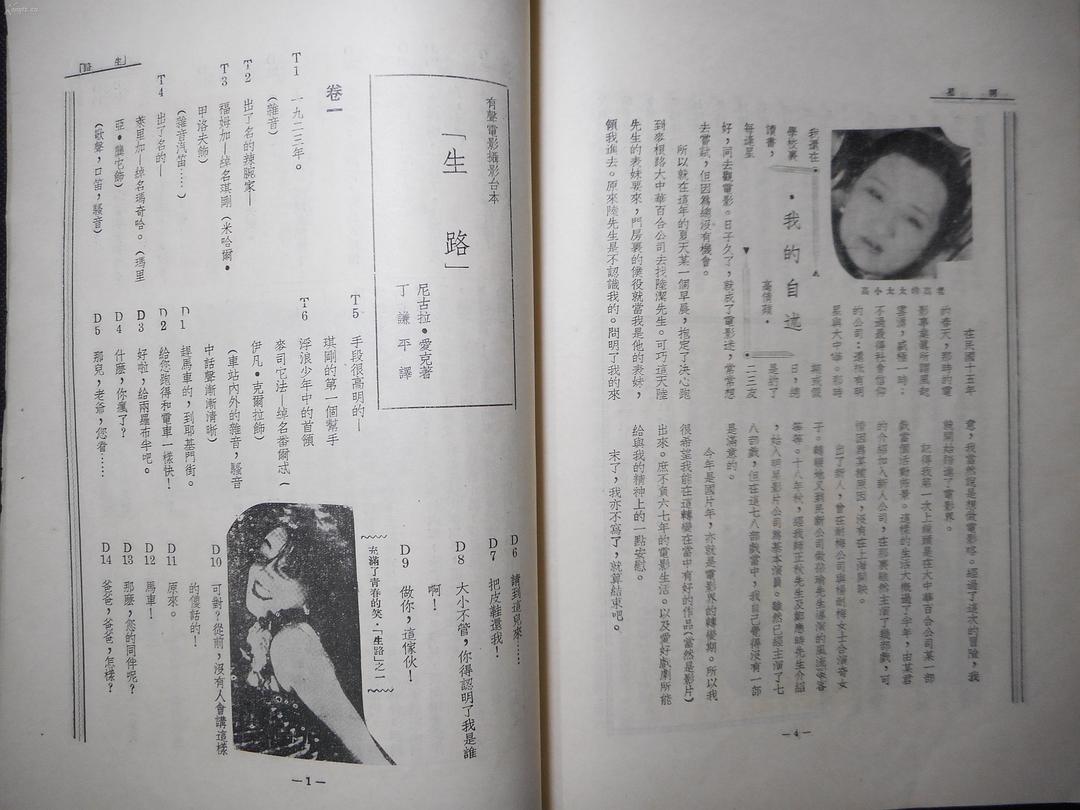 明星
我的自述
高倩蘋
我還在
學校裏
讀書，
每逢星
期或假
日，總
是約了
二三友
好，同去觀電影。日子久了，就成了電影迷，常常想
去嘗試，但因為總沒有機會。
所以就在這年的夏天某一個早晨，抱定了决心跑
到麥根路大中華百合公司去找陸潔先生。可巧這天陸
先生的表妹要來，門房裏的僕役就當我是他的表妹，
領我進去。原來陸先生是不認識我的。問明了我的來
在民國十五年
的春天，那時的電
影事業眞所謂風起
雲湧，盛極一時；
不過最得社會信仰
的公司：還祇有明
星與大中華。那時
意，我當然說是想做電影咯。經過了這次的冒險，我
就開始踏進了電影界。
記得我第一次上鏡頭是在大中華百合公司某一部
戲當個活動佈景。這樣的生活大概過了半年，由某君
的介紹加入新人公司，在那裏雖然主演了幾部戲，可
惜因爲某種原因，沒有在上海開映。
出了新人，曾在劍梅公司與楊劍梅女士合演奇女
子。轉輾地又到民新公司做孫瑜先生導演的風流劍客
等等。十八年秋，經我師正秋先生及鄭應時先生介紹
，始入明星影片公司爲基本演員。雖然已經主演了七
八部戲，但在這七八部戲當中，我自己覺得沒有一部
是滿意的。
今年是國片年，亦就是電影界的轉變期。所以我
很希望我能在這轉變在當中有好的作品（當然是影片）
出來。庶不負六七年的電影生活。以及愛好戲劇所能
給與我的精神上的一點安慰。
末了，我亦不寫了，就算結束吧。
—4—
生路
有聲電影攝影台本
「生路」
尼古拉·愛克著
丁謙平譯
卷一
T1 一九二三年。
（雜音）
T2 出了名的辣腕家—
T3 福姆加—綽名琪剛（米哈爾·
甲洛夫飾）
（雜音汽笛……）
T4 出了名的—
萊里加—綽名瑪奇哈。（瑪里
亞·飾）
（歌聲，口笛，騷音）
T5 手段很高明的—
琪剛的第一個幫手
T6 浮浪少年中的首領
麥司它法—綽名番爾忒（
伊凡·克爾拉飾）
（車站內外的雜音，騷音
中話聲漸漸清晰）
D1 趕馬車的，到耶基門街。
D2 給您跑得和電車一樣快！
D3 好啦，給兩羅布半吧。
D4 什麽，你瘋了？
D5 那兒，老爺，您看……
D6 請到這兒來……
D7 把皮鞋還我！
D8 大小不管，你得認明了我是誰
啊！
D9 做你，這傢伙！
充滿了青春的笑·「生路」之一
D10 可對？從前，沒有人會講這樣
的儍話的！
D11 原來。
D12 馬車！
D13 那麽，您的同伴呢？
D14 爸爸，爸爸，怎樣？
—1—